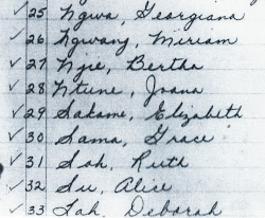 ✓25 Ngwa, Georgiana
✓26 Ngwang, Miriam
✓27 Njie, Bertha
✓28 Ntune, Joana
✓29 Sakame, Elizabeth
✓30 Sama, Grace
✓31 Soh, Ruth
✓32 Su, Alice
✓33 Tah, Deborah